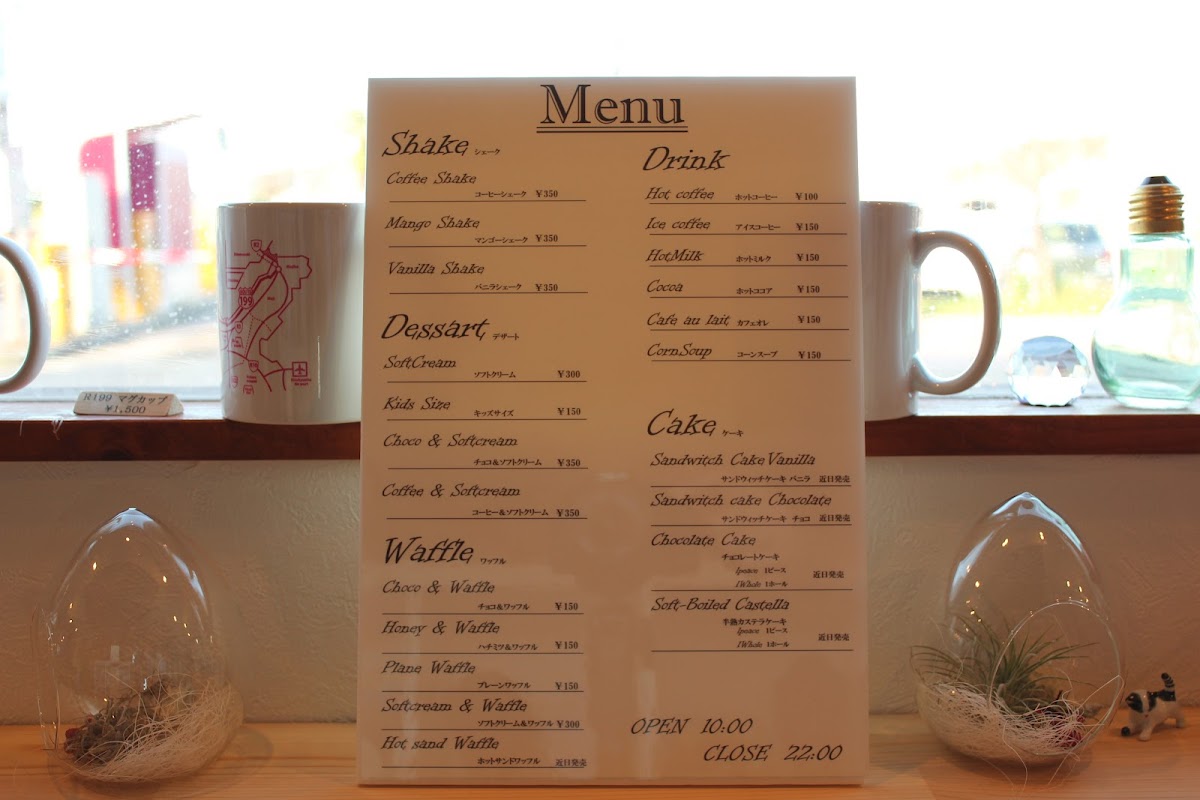 Menu
Shake シェーク
Coffee Shake
コーヒーシェーク ¥350
Mango Shake
マンゴーシェーク ¥350
Vanilla Shake
バニラシェーク ¥350
Dessart デザート
SoftCream
ソフトクリーム ¥300
Kids Size
キッズサイズ ¥150
Choco & Softcream
チョコ&ソフトクリーム ¥350
Coffee & Softcream
コーヒー&ソフトクリーム ¥350
Waffle ワッフル
Choco & Waffle
チョコ&ワッフル ¥150
Honey & Waffle
ハチミツ&ワッフル ¥150
Plane Waffle
プレーンワッフル ¥150
Softcream & Waffle
ソフトクリーム&ワッフル ¥300
Hot sand Waffle
ホットサンドワッフル 近日発売
Drink
Hot coffee ホットコーヒー ¥100
Ice coffee アイスコーヒー ¥150
HotMilk ホットミルク ¥150
Cocoa ホットココア ¥150
Cafe au lait カフェオレ ¥150
CornSoup コーンスープ ¥150
Cake ケーキ
Sandwitch CakeVanilla
サンドウィッチケーキ バニラ 近日発売
Sandwitch cake Chocolate
サンドウィッチケーキ チョコ 近日発売
Chocolate Cake
チョコレートケーキ
1peace 1ピース
近日発売
1Whole 1ホール
Soft-Boiled Castella
半熟カステラケーキ
1peace 1ピース
近日発売
1Whole 1ホール
OPEN 10:00
CLOSE 22:00
R199 マグカップ
¥1,500
199